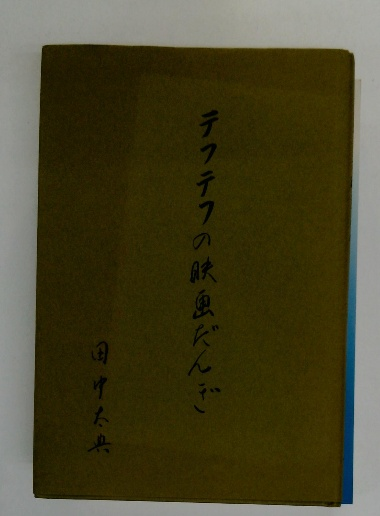 テフテフの映画だんぎ
田中太典